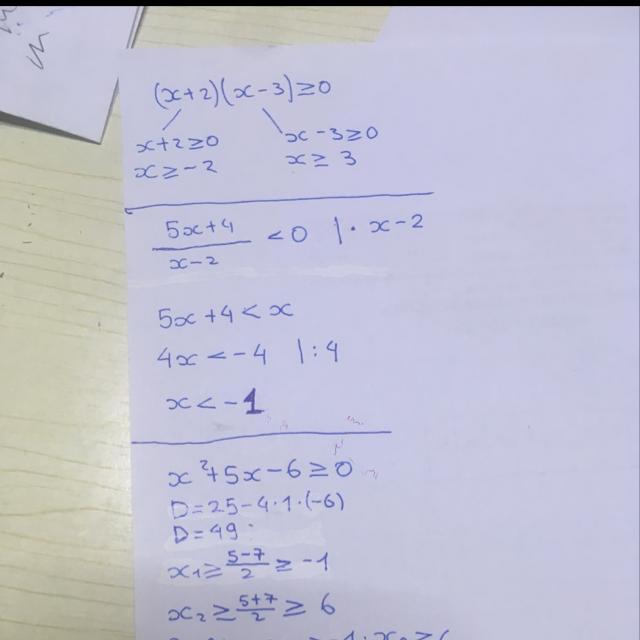 (x+2)(x-3)≥0
x+2≥0 x-3≥0
x≥-2 x≥ 3
5x+4
x-2 <0 |· x-2
5x+4<x
4x<-4 |:4
x<-1
x²+5x-6≥0
D=25-4·1·(-6)
D=49
x₁≥ 5-7/2 ≥ -1
x₂≥ 5+7/2 ≥ 6